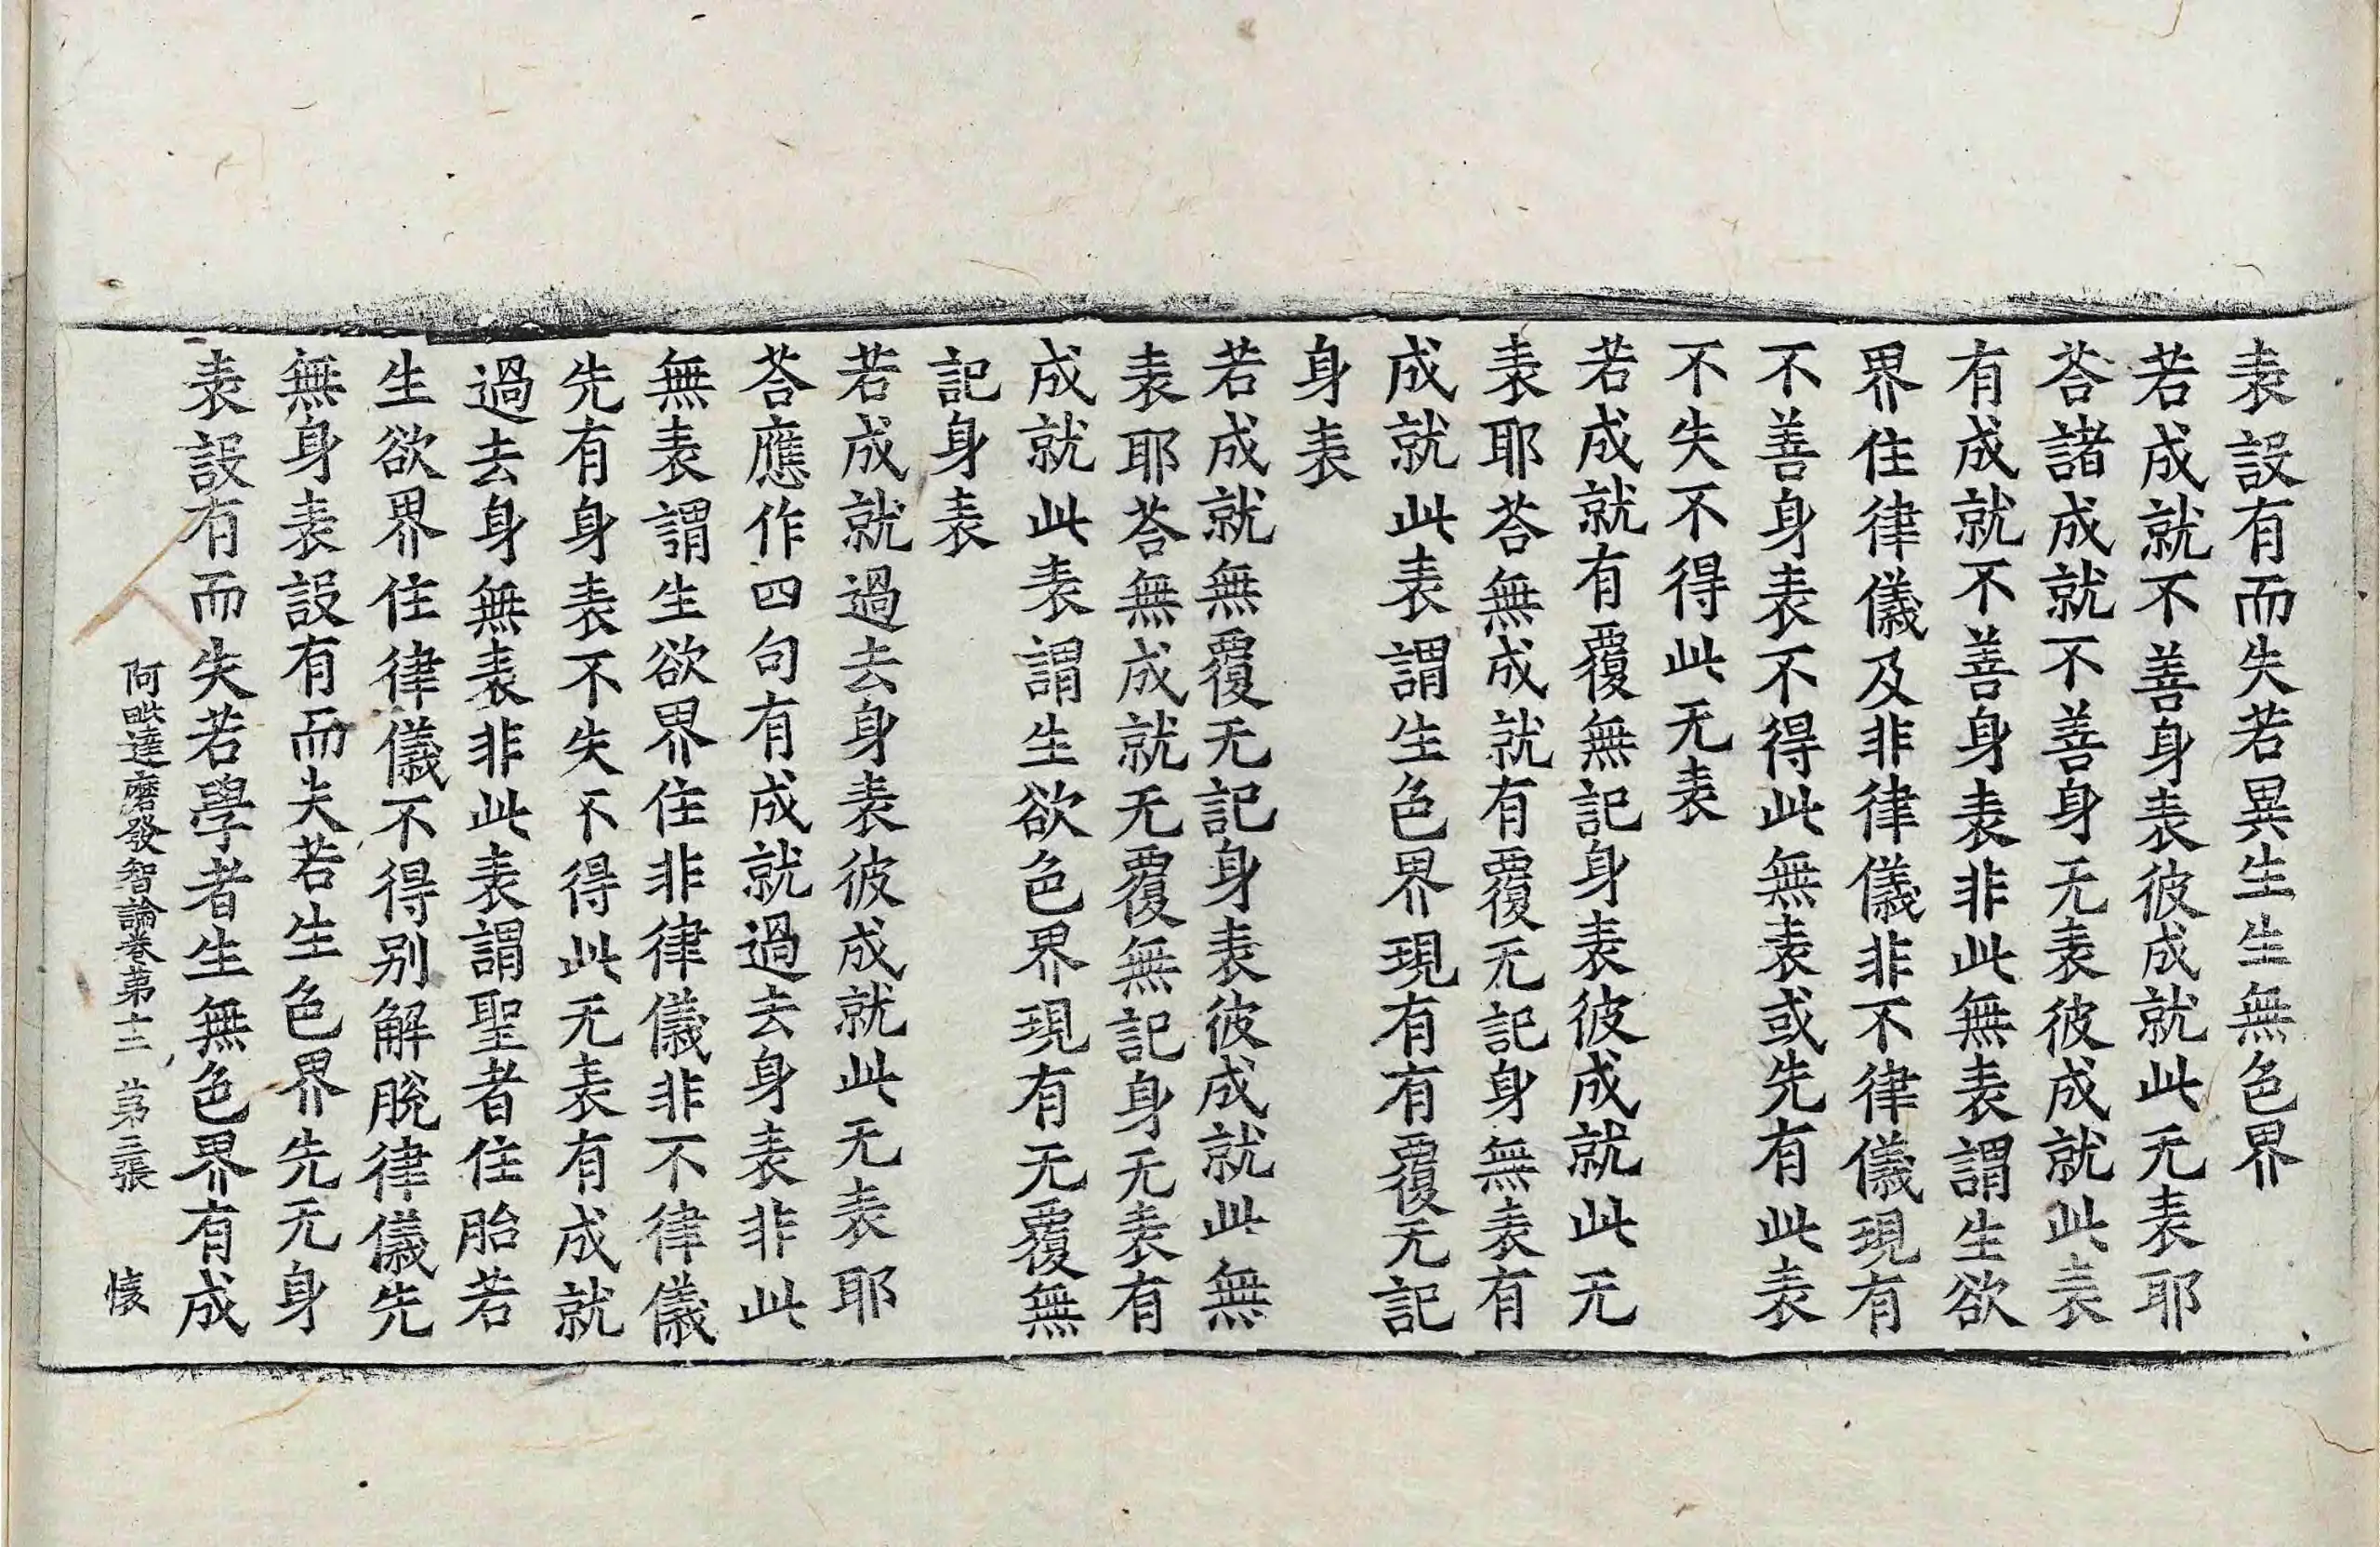 表設有而失若異生生無色界
若成就不善身表彼成就此无表耶
荅諸成就不善身无表彼成就此表
有成就不善身表非此無表謂生欲
界住律儀及非律儀非不律儀現有
不善身表不得此無表或先有此表
不失不得此无表
若成就有覆無記身表彼成就此无
表耶荅無成就有覆无記身無表有
成就此表謂生色界現有有覆无記
身表
若成就無覆无記身表彼成就此無
表耶荅無成就无覆無記身无表有
成就此表謂生欲色界現有无覆無
記身表
若成就過去身表彼成就此无表耶
荅應作四句有成就過去身表非此
無表謂生欲界住非律儀非不律儀
先有身表不失不得此无表有成就
過去身無表非此表謂聖者住胎若
生欲界住律儀不得别解脫律儀先
無身表設有而失若生色界先无身
表設有而失若學者生無色界有成
阿毗達磨發智論卷苐十二 苐三張 懐